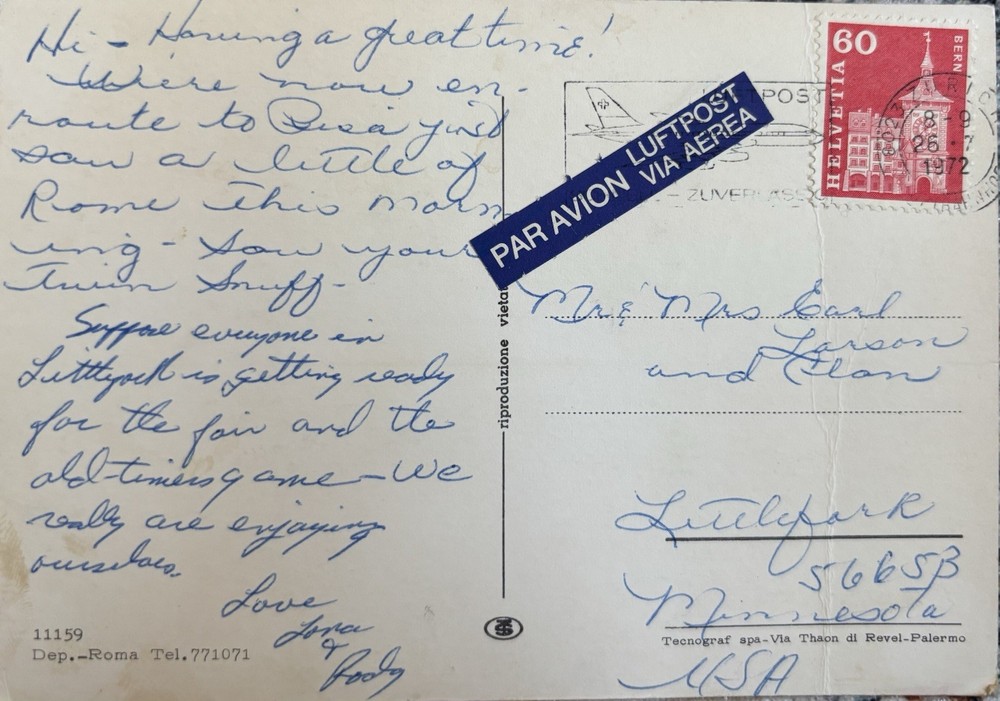 Hi - Having a great time!
We're now en-
route to Pisa just
saw a little of
Rome this morn
ing - saw your
Twin Snuff-
Suppose everyone in
Littlefork is getting ready
for the fair and the
old-timers game - We
really are enjoying
ourselves.
Love
Lona
&
Rody
11159
Dep.-Roma Tel.771071
riproduzione vietat
PAR AVION LUFTPOST
VIA AEREA
LUFTPOST
ZUVERLÄSS
60
HELVETIA
BERN
8-9
26.7
1972
Mr & Mrs Earl
Larson
and Clan
Littlefork
56653
Minnesota
USA
Tecnograf spa-Via Thaon di Revel-Palermo